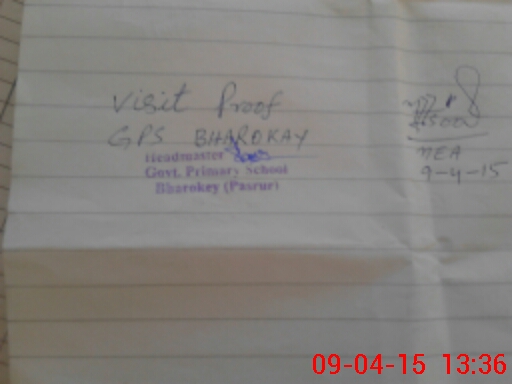 Visit Proof
GPS BHAROKAY
Headmaster
Govt. Primary School
Bharokey (Pasrur)
MEA
9-4-15
09-04-15 13:36